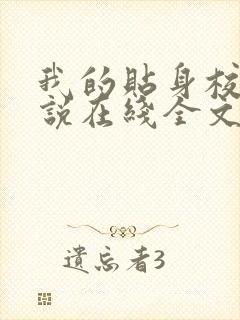 我的貼身校
説在綫全文
遺忘者3